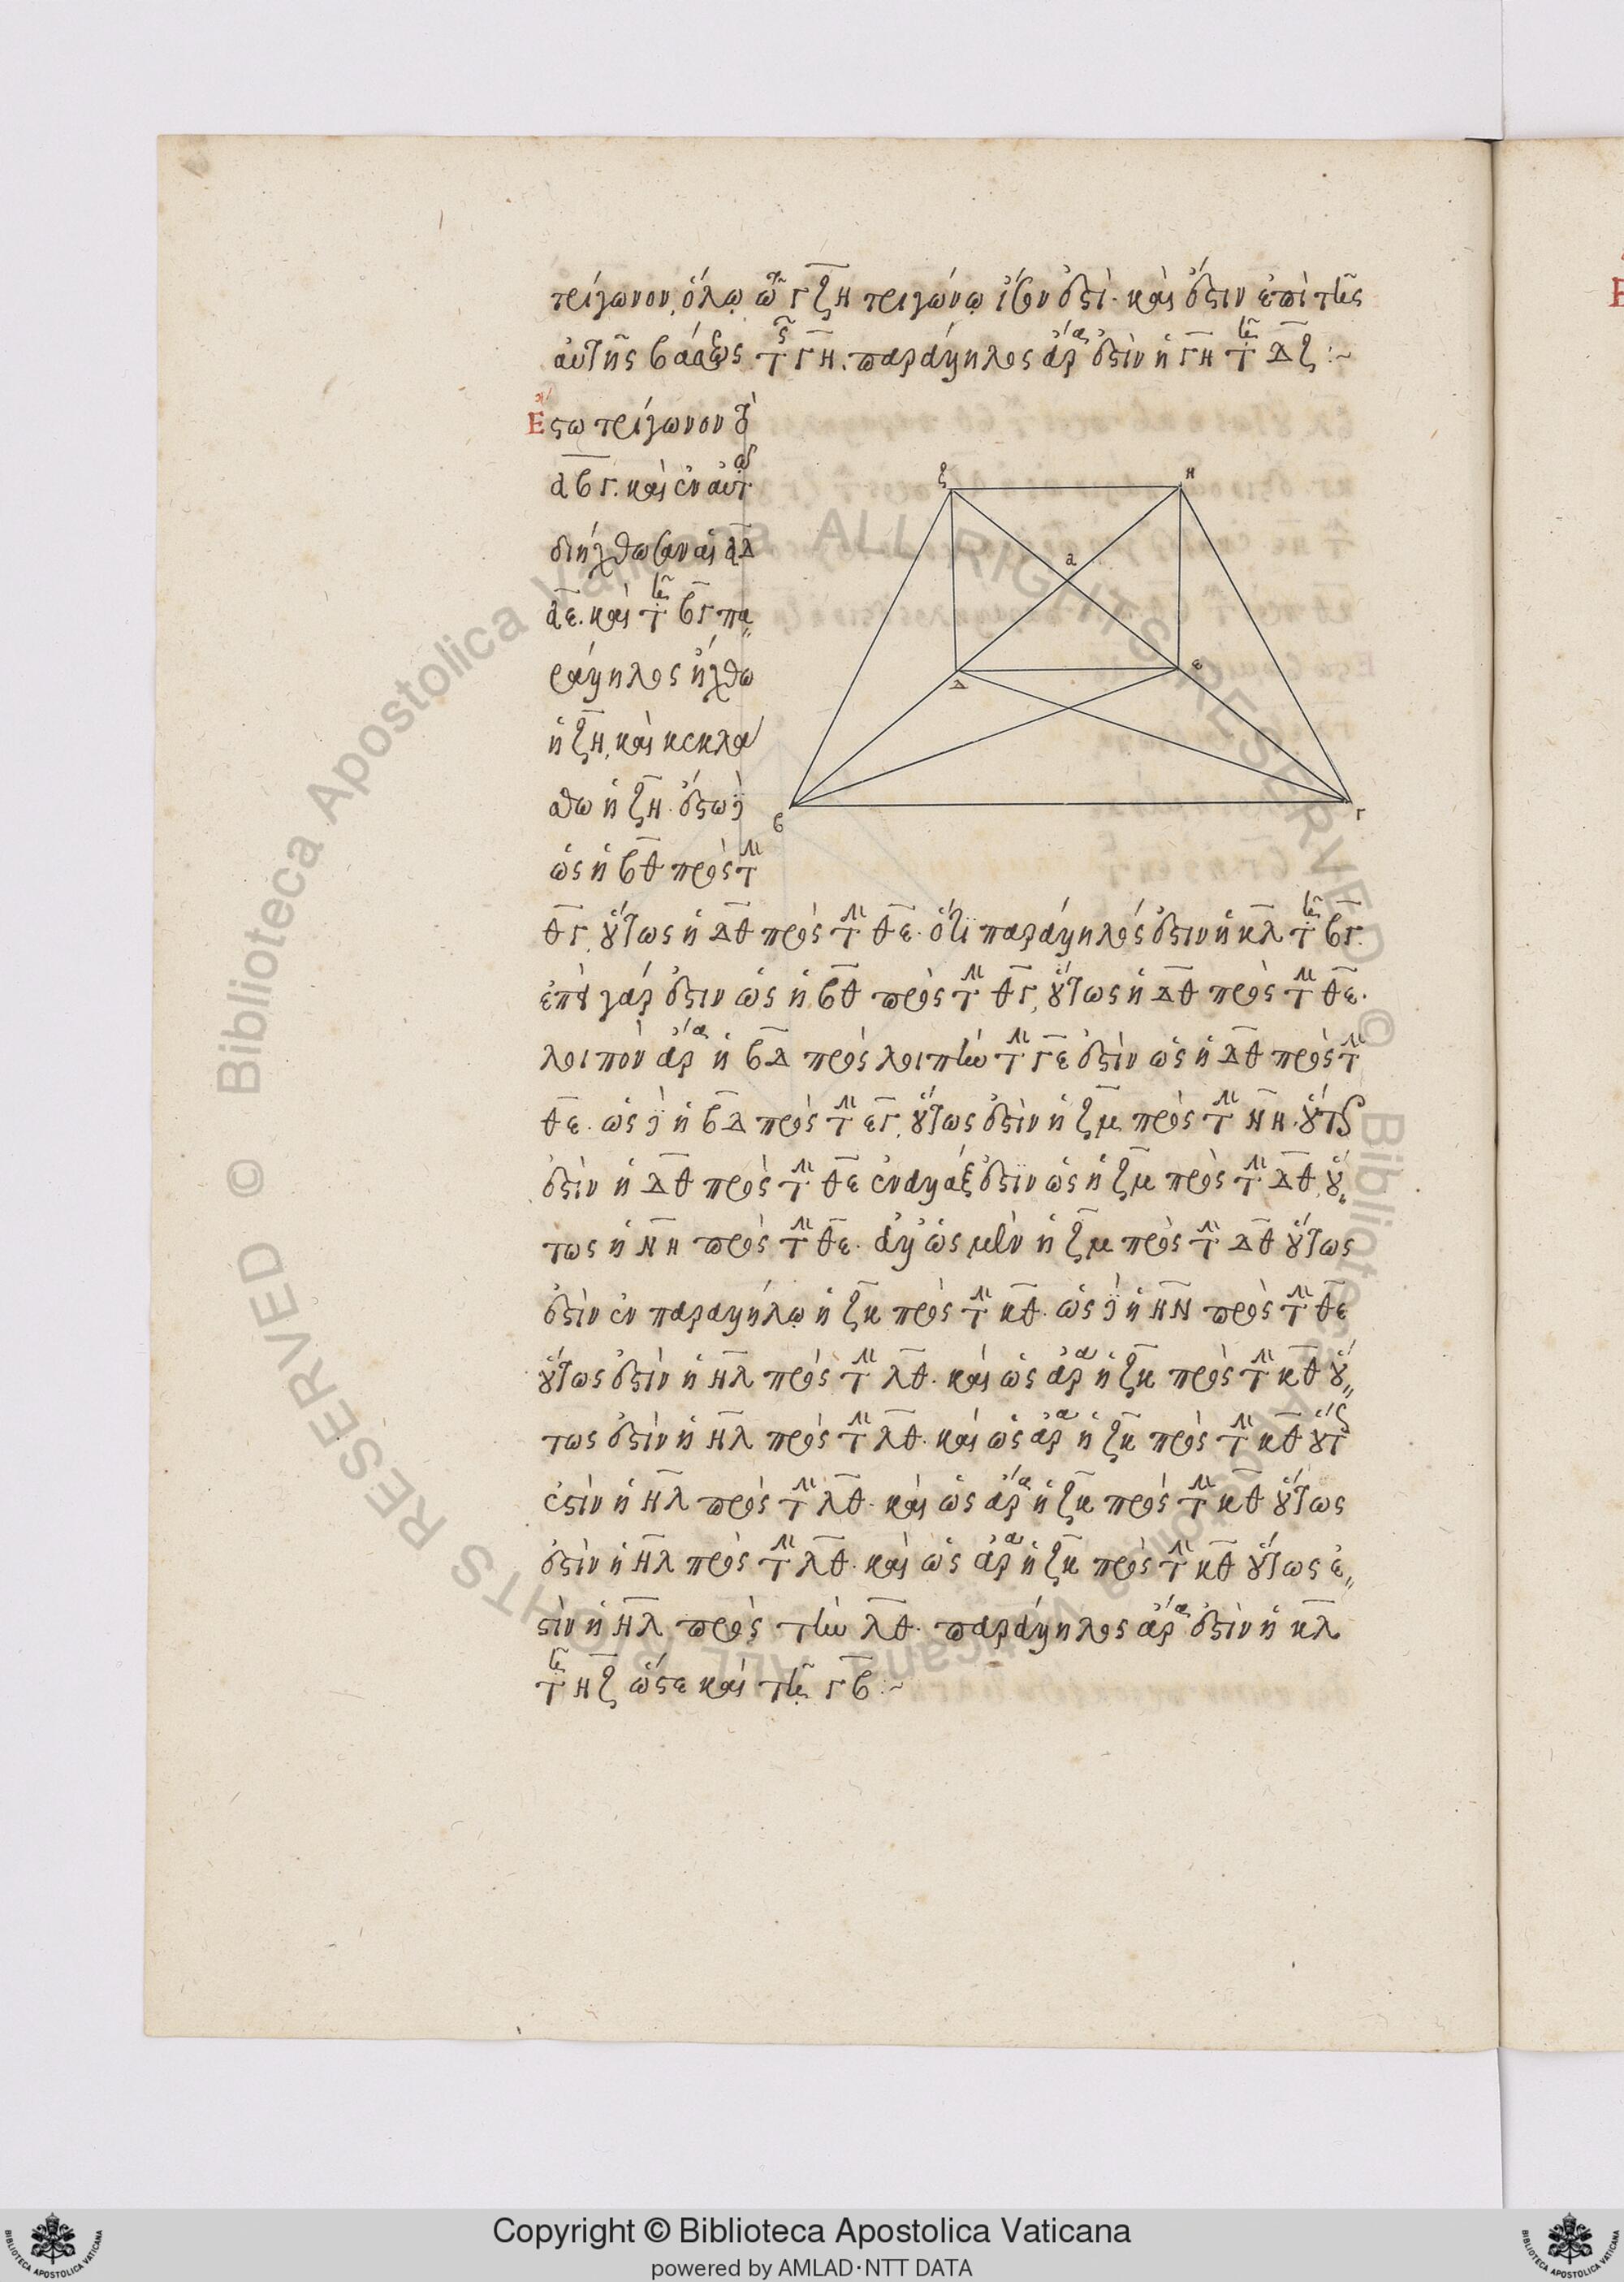 τρίγωνον, ὅλῳ τῷ ΓΖΗ τριγώνῳ ἴσον ἐστί· καὶ ἔστιν ἐπὶ τῆς
αὐτῆς βάσεως τῆς ΓΗ. παράλληλος ἄρα ἐστὶν ἡ ΓΗ τῇ ΔΖ :~
Ἔστω τρίγωνον τὸ
ΑΒΓ. καὶ ἐν αὐτῷ
διήχθωσαν αἱ ΑΔ
ΑΕ. καὶ τῇ ΒΓ πα
ράλληλος ἤχθω
ἡ ΖΗ, καὶ κεκλά
σθω ἡ ΖΗ. ἔστω δὲ
ὡς ἡ ΒΘ πρὸς τὴν
ΘΓ, οὕτως ἡ ΔΘ πρὸς τὴν ΘΕ. ὅτι παράλληλός ἐστιν ἡ ΚΛ τῇ ΒΓ.
ἐπεὶ γάρ ἐστιν ὡς ἡ ΒΘ πρὸς τὴν ΘΓ, οὕτως ἡ ΔΘ πρὸς τὴν ΘΕ.
λοιπὸν ἄρα ἡ ΒΔ πρὸς λοιπὴν τὴν ΓΕ ἐστὶν ὡς ἡ ΔΘ πρὸς τὴν
ΘΕ. ὡς δὲ ἡ ΒΔ πρὸς τὴν ΕΓ, οὕτως ἐστὶν ἡ ΖΜ πρὸς τὴν ΝΗ. οὕτως
ἐστὶν ἡ ΔΘ πρὸς τὴν ΘΕ ἐναλλάξ ἐστιν ὡς ἡ ΖΜ πρὸς τὴν ΔΘ, οὕ
τως ἡ ΝΗ πρὸς τὴν ΘΕ. ἀλλ' ὡς μὲν ἡ ΖΜ πρὸς τὴν ΔΘ οὕτως
ἐστὶν ἐν παραλλήλῳ ἡ ΖΚ πρὸς τὴν ΚΘ. ὡς δὲ ἡ ΗΝ πρὸς τὴν ΘΕ
οὕτως ἐστὶν ἡ ΗΛ πρὸς τὴν ΛΘ. καὶ ὡς ἄρα ἡ ΖΚ πρὸς τὴν ΚΘ οὕ
τως ἐστὶν ἡ ΗΛ πρὸς τὴν ΛΘ. καὶ ὡς ἄρα ἡ ΖΚ πρὸς τὴν ΚΘ οὕτως
ἐστὶν ἡ ΗΛ πρὸς τὴν ΛΘ. καὶ ὡς ἄρα ἡ ΖΚ πρὸς τὴν ΚΘ οὕτως
ἐστὶν ἡ ΗΛ πρὸς τὴν ΛΘ. καὶ ὡς ἄρα ἡ ΖΚ πρὸς τὴν ΚΘ οὕτως ἐ
στὶν ἡ ΗΛ πρὸς τὴν ΛΘ. παράλληλος ἄρα ἐστὶν ἡ ΚΛ
τῇ ΗΖ ὥστε καὶ τῇ ΓΒ :~
Ζ Η
Α
Δ Ε
Β Γ
© Biblioteca Apostolica Vaticana ALL RIGHTS RESERVED
© Biblioteca Apostolica Vaticana ALL RIGHTS RESERVED
Copyright © Biblioteca Apostolica Vaticana
powered by AMLAD·NTT DATA
BIBLIOTECA APOSTOLICA VATICANA
BIBLIOTECA APOSTOLICA VATICANA